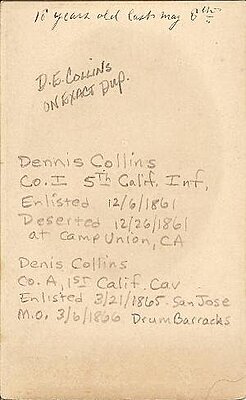 16 years old last may 8th
D.E. Collins
on Exact Dup.
Dennis Collins
Co. I 5th Calif. Inf.
Enlisted 12/6/1861
Deserted 12/26/1861
at Camp Union, CA
Denis Collins
Co. A, 1st Calif. Cav
Enlisted 3/21/1865 San Jose
M.O. 3/6/1866 Drum Barracks